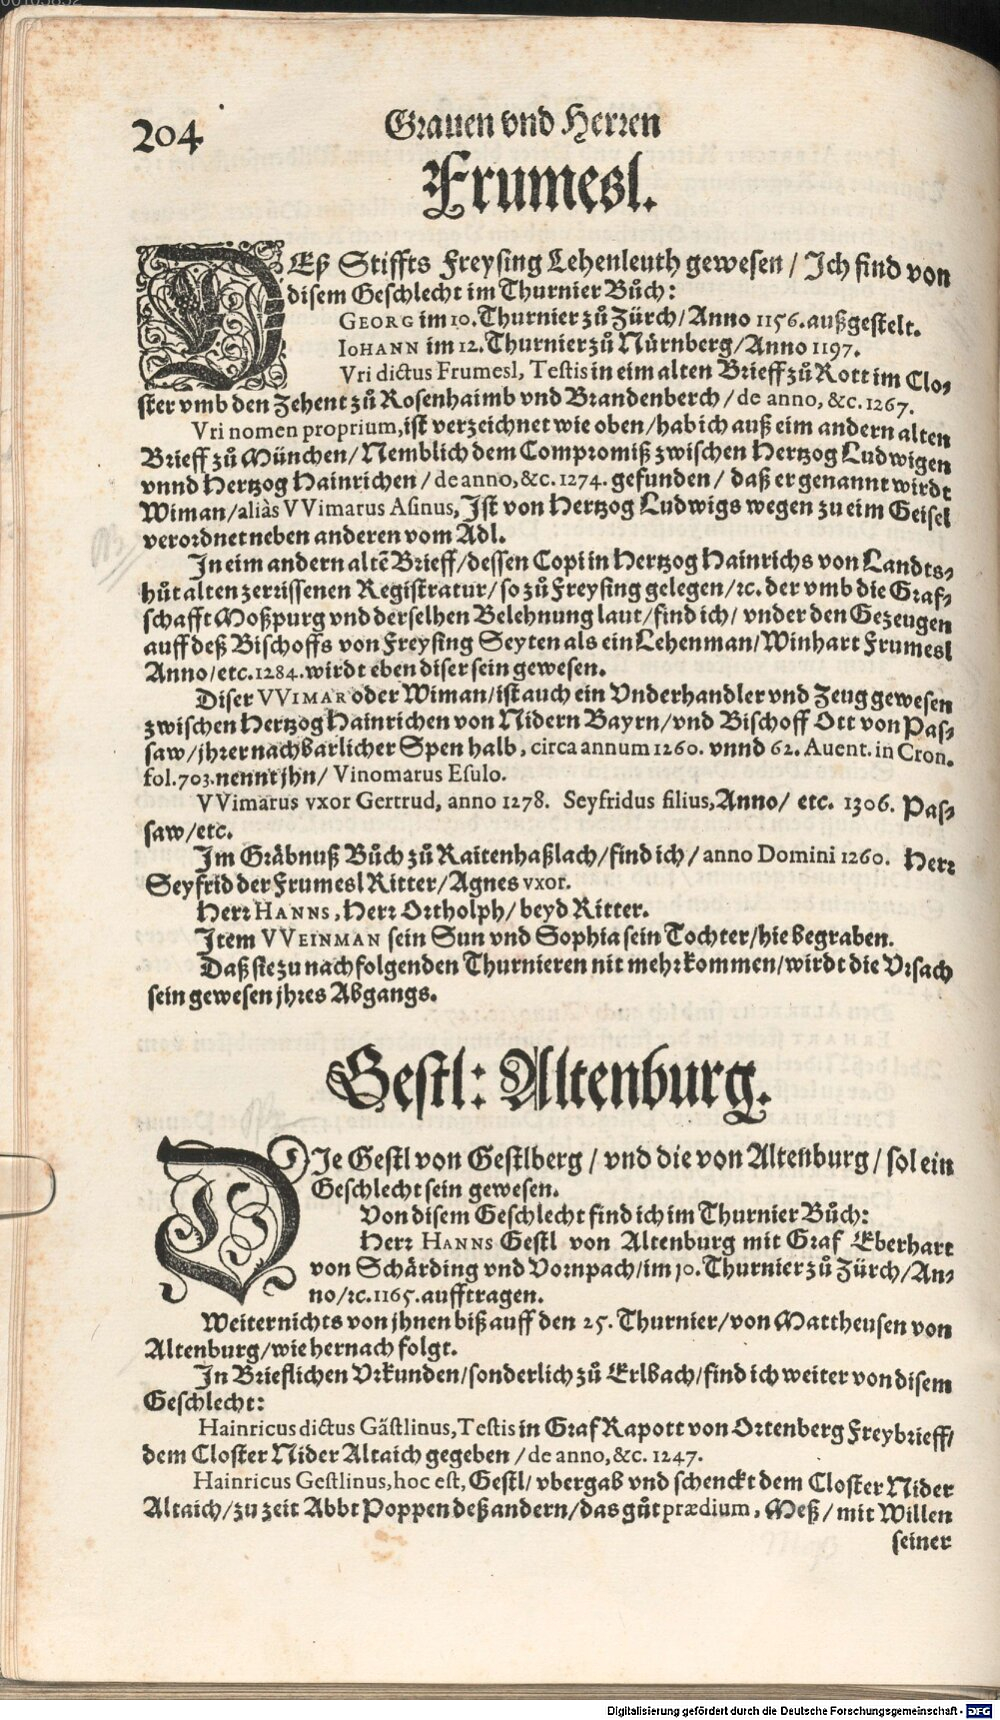 204
Grauen vnd Herren
Frumesl.
DEß Stiffts Freysing Lehenleuth gewesen / Ich find von
disem Geschlecht im Thurnier Bůch:
GEORG im 10. Thurnier zů Zürch / Anno 1156. außgestelt.
IOHANN im 12. Thurnier zů Nürnberg / Anno 1197.
Vri dictus Frumesl, Testis in eim alten Brieff zů Rott im Clo-
ster vmb den Zehent zů Rosenhaimb vnd Brandenberch / de anno, &c. 1267.
Vri nomen proprium, ist verzeichnet wie oben / hab ich auß eim andern alten
Brieff zů München / Nemblich dem Compromiß zwischen Hertzog Ludwigen
vnnd Hertzog Hainrichen / de anno, &c. 1274. gefunden / daß er genannt wirdt
Wiman / aliàs VVimarus Asinus, Ist von Hertzog Ludwigs wegen zu eim Geisel
verordnet neben anderen vom Adl.
In eim andern altẽ Brieff / dessen Copi in Hertzog Hainrichs von Landts-
hůt alten zerrissenen Registratur / so zů Freysing gelegen / ꝛc. der vmb die Graf-
schafft Moßpurg vnd derselben Belehnung laut / find ich / vnder den Gezeugen
auff deß Bischoffs von Freysing Seyten als ein Lehenman / Winhart Frumesl
Anno / etc. 1284. wirdt eben diser sein gewesen.
Diser VVIMAR oder Wiman / ist auch ein Vnderhandler vnd Zeug gewesen
zwischen Hertzog Hainrichen von Nidern Bayrn / vnd Bischoff Ott von Pas-
saw / jhrer nachbarlicher Spen halb, circa annum 1260. vnnd 62. Auent. in Cron.
fol. 703. nennt jhn / Vinomarus Esulo.
VVimarus vxor Gertrud, anno 1278. Seyfridus filius, Anno / etc. 1306. Pas-
saw / etc.
Im Gräbnuß Bůch zů Raitenhaßlach / find ich / anno Domini 1260. Herr
Seyfrid der Frumesl Ritter / Agnes vxor.
Herr HANNS, Herr Ortholph / beyd Ritter.
Item VVEINMAN sein Sun vnd Sophia sein Tochter / hie begraben.
Daß sie zu nachfolgenden Thurnieren nit mehr kommen / wirdt die Vrsach
sein gewesen jhres Abgangs.
Gestl: Altenburg.
DIe Gestl von Gestlberg / vnd die von Altenburg / sol ein
Geschlecht sein gewesen.
Von disem Geschlecht find ich im Thurnier Bůch:
Herr HANNS Gestl von Altenburg mit Graf Eberhart
von Schärding vnd Vornpach / im 10. Thurnier zů Zürch / An-
no / ꝛc. 1165. aufftragen.
Weiter nichts von jhnen biß auff den 25. Thurnier / von Mattheusen von
Altenburg / wie hernach folgt.
In Brieflichen Vrkunden / sonderlich zů Erlbach / find ich weiter von disem
Geschlecht:
Hainricus dictus Gästlinus, Testis in Graf Rapott von Ortenberg Freybrieff /
dem Closter Nider Altaich gegeben / de anno, &c. 1247.
Hainricus Gestlinus, hoc est, Gestl / vbergab vnd schenckt dem Closter Nider
Altaich / zu zeit Abbt Poppen deß andern / das gůt prædium, Meß / mit Willen
seiner
Digitalisierung gefördert durch die Deutsche Forschungsgemeinschaft - DFG